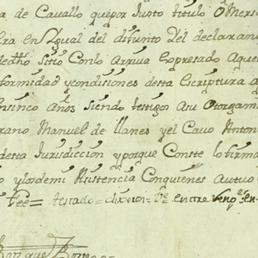 a de Cavallo que por Justo titulo o Mersed
ra en Igual del difunto del declarame
dedho Sitio Conlo arriva Espresado aque
formidad y condiciones desta Escriptura a
sinco años siendo testigos a su otorgam
rano Manuel de llanes y el Cavo Anton
desta Jurisdiccion y porque Conste lo firma
o y los demi Asistencia Conquienes autuo
fee = testado = dixeron = Ve entre reng en